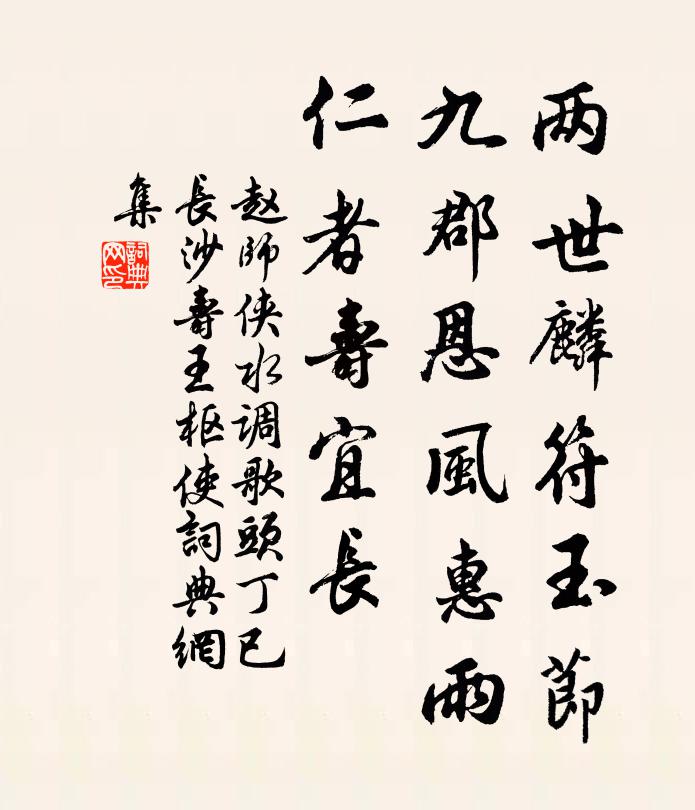 两世麟符玉節
九郡恩風惠雨
仁者壽宜長
赵師侠水调歌頭丁巳
長沙壽王枢使詞典網
集
詞典网印